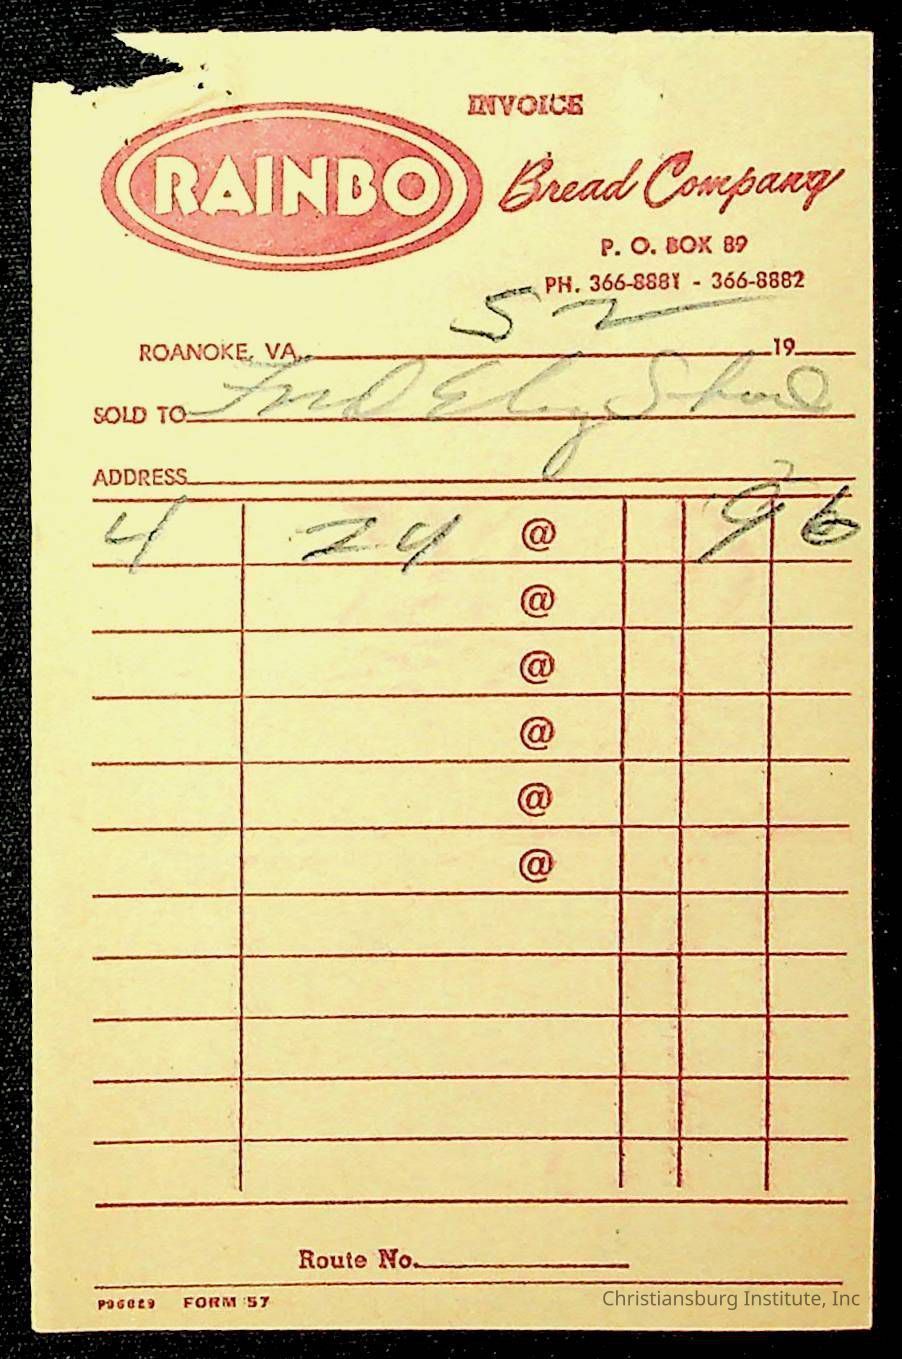 INVOICE
RAINBO
Bread Company
P. O. BOX 89
PH. 366-8881 - 366-8882
5 2
ROANOKE, VA. 19
SOLD TO School
ADDRESS
4 24 @ 96
@
@
@
@
@
Route No.
P96029 FORM 57
Christiansburg Institute, Inc